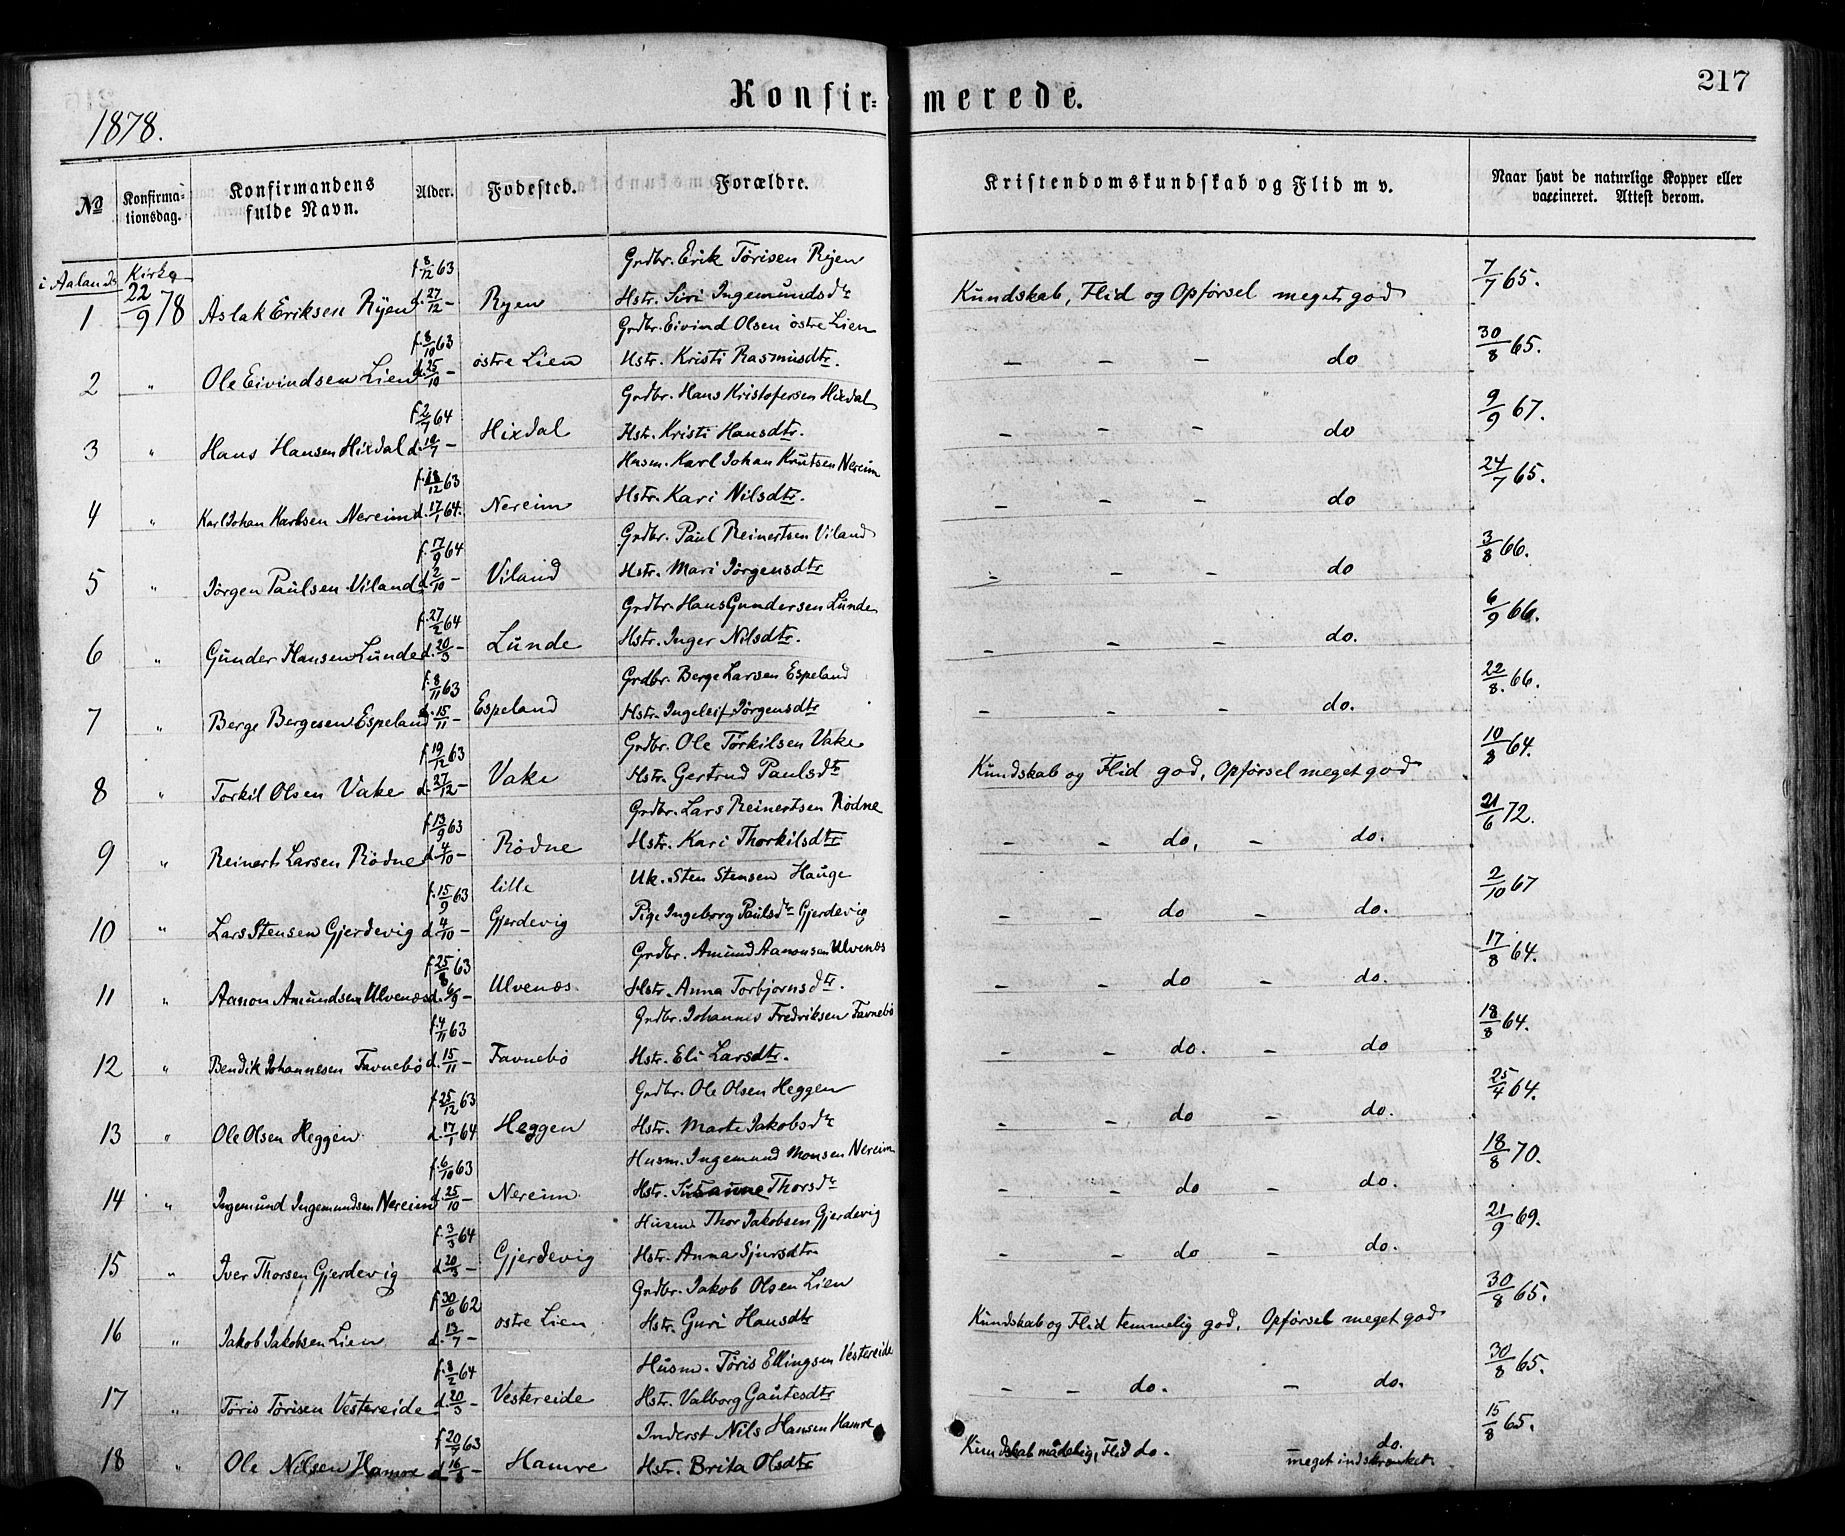 217
Konfir- merede.
1878.
No
Konfirma-
tionsdag.
Konfirmandens
fulde Navn.
Alder.
Fødested.
Forældre.
Kristendomskundskab og Flid m v.
Naar havt de naturlige Kopper eller
vaccineret. Attest derom.
i Aalands Kirke
1 22/9 78 Aslak Eriksen Ryen f. 8/12 63 d. 27/12 – Ryen Grdbr. Erik Tørisen Ryen Hstr. Siri Ingemundsdtr Kundskab, Flid og Opførsel meget god 7/7 65.
2 " Ole Eivindsen Lien f. 8/10 63 d. 25/10 – østre Lien Grdbr. Eivind Olsen østre Lien Hstr. Kristi Rasmusdtr. – – – do 30/8 65.
3 " Hans Hansen Hixdal f. 2/7 64 d. /7 – Hixdal Grdbr. Hans Kristofersen Hixdal Hstr. Kristi Hansdtr. – – – do 9/9 67.
4 " Karl Johan Karlsen Nereim f. 18/12 63 d. 17/1 64. Nereim Husm. Karl Johan Knutsen Nereim Hstr. Kari Nilsdtr. – – – do 24/7 65.
5 " Jørgen Paulsen Viland f. 17/9 64 d. 2/10 – Viland Grdbr. Paul Reinertsen Viland Hstr. Mari Jørgensdtr – – – do 3/8 66.
6 " Gunder Hansen Lunde f. 27/2 64 d. 20/3 – Lunde Grdbr. Hans Gundersen Lunde Hstr. Inger Nilsdtr. – – – do. 6/9 66.
7 " Berge Bergesen Espeland f. 8/11 63 d. 15/11 – Espeland Grdbr. Berge Larsen Espeland Hstr. Ingeleif Jørgensdtr – – – do. 22/8. 66.
8 " Torkil Olsen Vake f. 19/12 63 d. 27/12 – Vake Grdbr. Ole Torkilsen Vake Hstr. Gertrud Paulsdtr Kundskab og Flid god, Opførsel meget god 10/8 64.
9 " Reinert Larsen Rødne f. 13/9 63 d. 4/10 – Rødne Grdbr. Lars Reinertsen Rødne Hstr. Kari Thorkilsdtr – – do, – do. 21/6 72.
10 " Lars Stensen Gjerdevig f. 15/9 63 d. 4/10 – lille Gjerdevig Uk. Sten Stensen Hauge Pige Ingeborg Paulsdtr Gjerdevig – – do – do. 2/10 67
11 " Aanon Amundsen Ulvenæs f. 25/8 63 d. 6/9 – Ulvenæs. Grdbr. Amund Aanonsen Ulvenæs Hstr. Anna Torbjørnsdtr. – – do – do. 17/8 64.
12 " Bendik Johannesen Favnebø f. 4/11 63 d. 15/11 – Favnebø Grdbr. Johannes Fredriksen Favnebø Hstr. Eli Larsdtr. – – do. – do 18/8 64.
13 " Ole Olsen Heggen f. 25/12 63 d. 17/1 64 Heggen Grdbr. Ole Olsen Heggen Hstr. Marte Jakobsdtr – – do – do. 25/4 64.
14 " Ingemund Ingemundsen Nereim f. 6/10 63 d. 25/10 – Nereim Husm. Ingemund Monsen Nereim Hstr. Susanne Thorsdtr – – do – do. 18/8 70.
15 " Iver Thorsen Gjerdevig f. 3/3 64 d. 20/3 – Gjerdevig Husm Thor Jakobsen Gjerdevig Hstr. Anna Sjursdtr – – do – do. 21/9 69.
16 " Jakob Jakobsen Lien f. 30/6 62 d. 13/7 – østre Lien Grdbr. Jakob Olsen Lien Hstr. Guri Hansdtr Kundskab og Flid temmelig god, Opførsel meget god 30/8 65.
17 " Tøris Tørisen Vestereide f. 8/2 64 d. 20/3 – Vestereide Husm. Tøris Ellingsen Vestereide Hstr. Valborg Gautesdtr – – do. – do. 30/8 65.
18 " Ole Nilsen Hamre f. 20/7 63 d. 16/8 – Hamre Inderst Nils Hansen Hamre Hstr. Brita Olsdtr Kundskab mådelig, Flid do. do. meget indskrænket. 15/8 65.